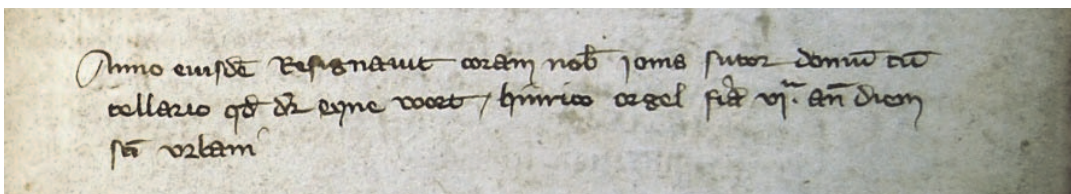 Anno eiusdē Resignauit coram nob̄ ioma sutor domū cū
cellario qd̄ dr̄ eyne woort / hinrico orgel fīa vj.ta an̄ diem
scī vrbani